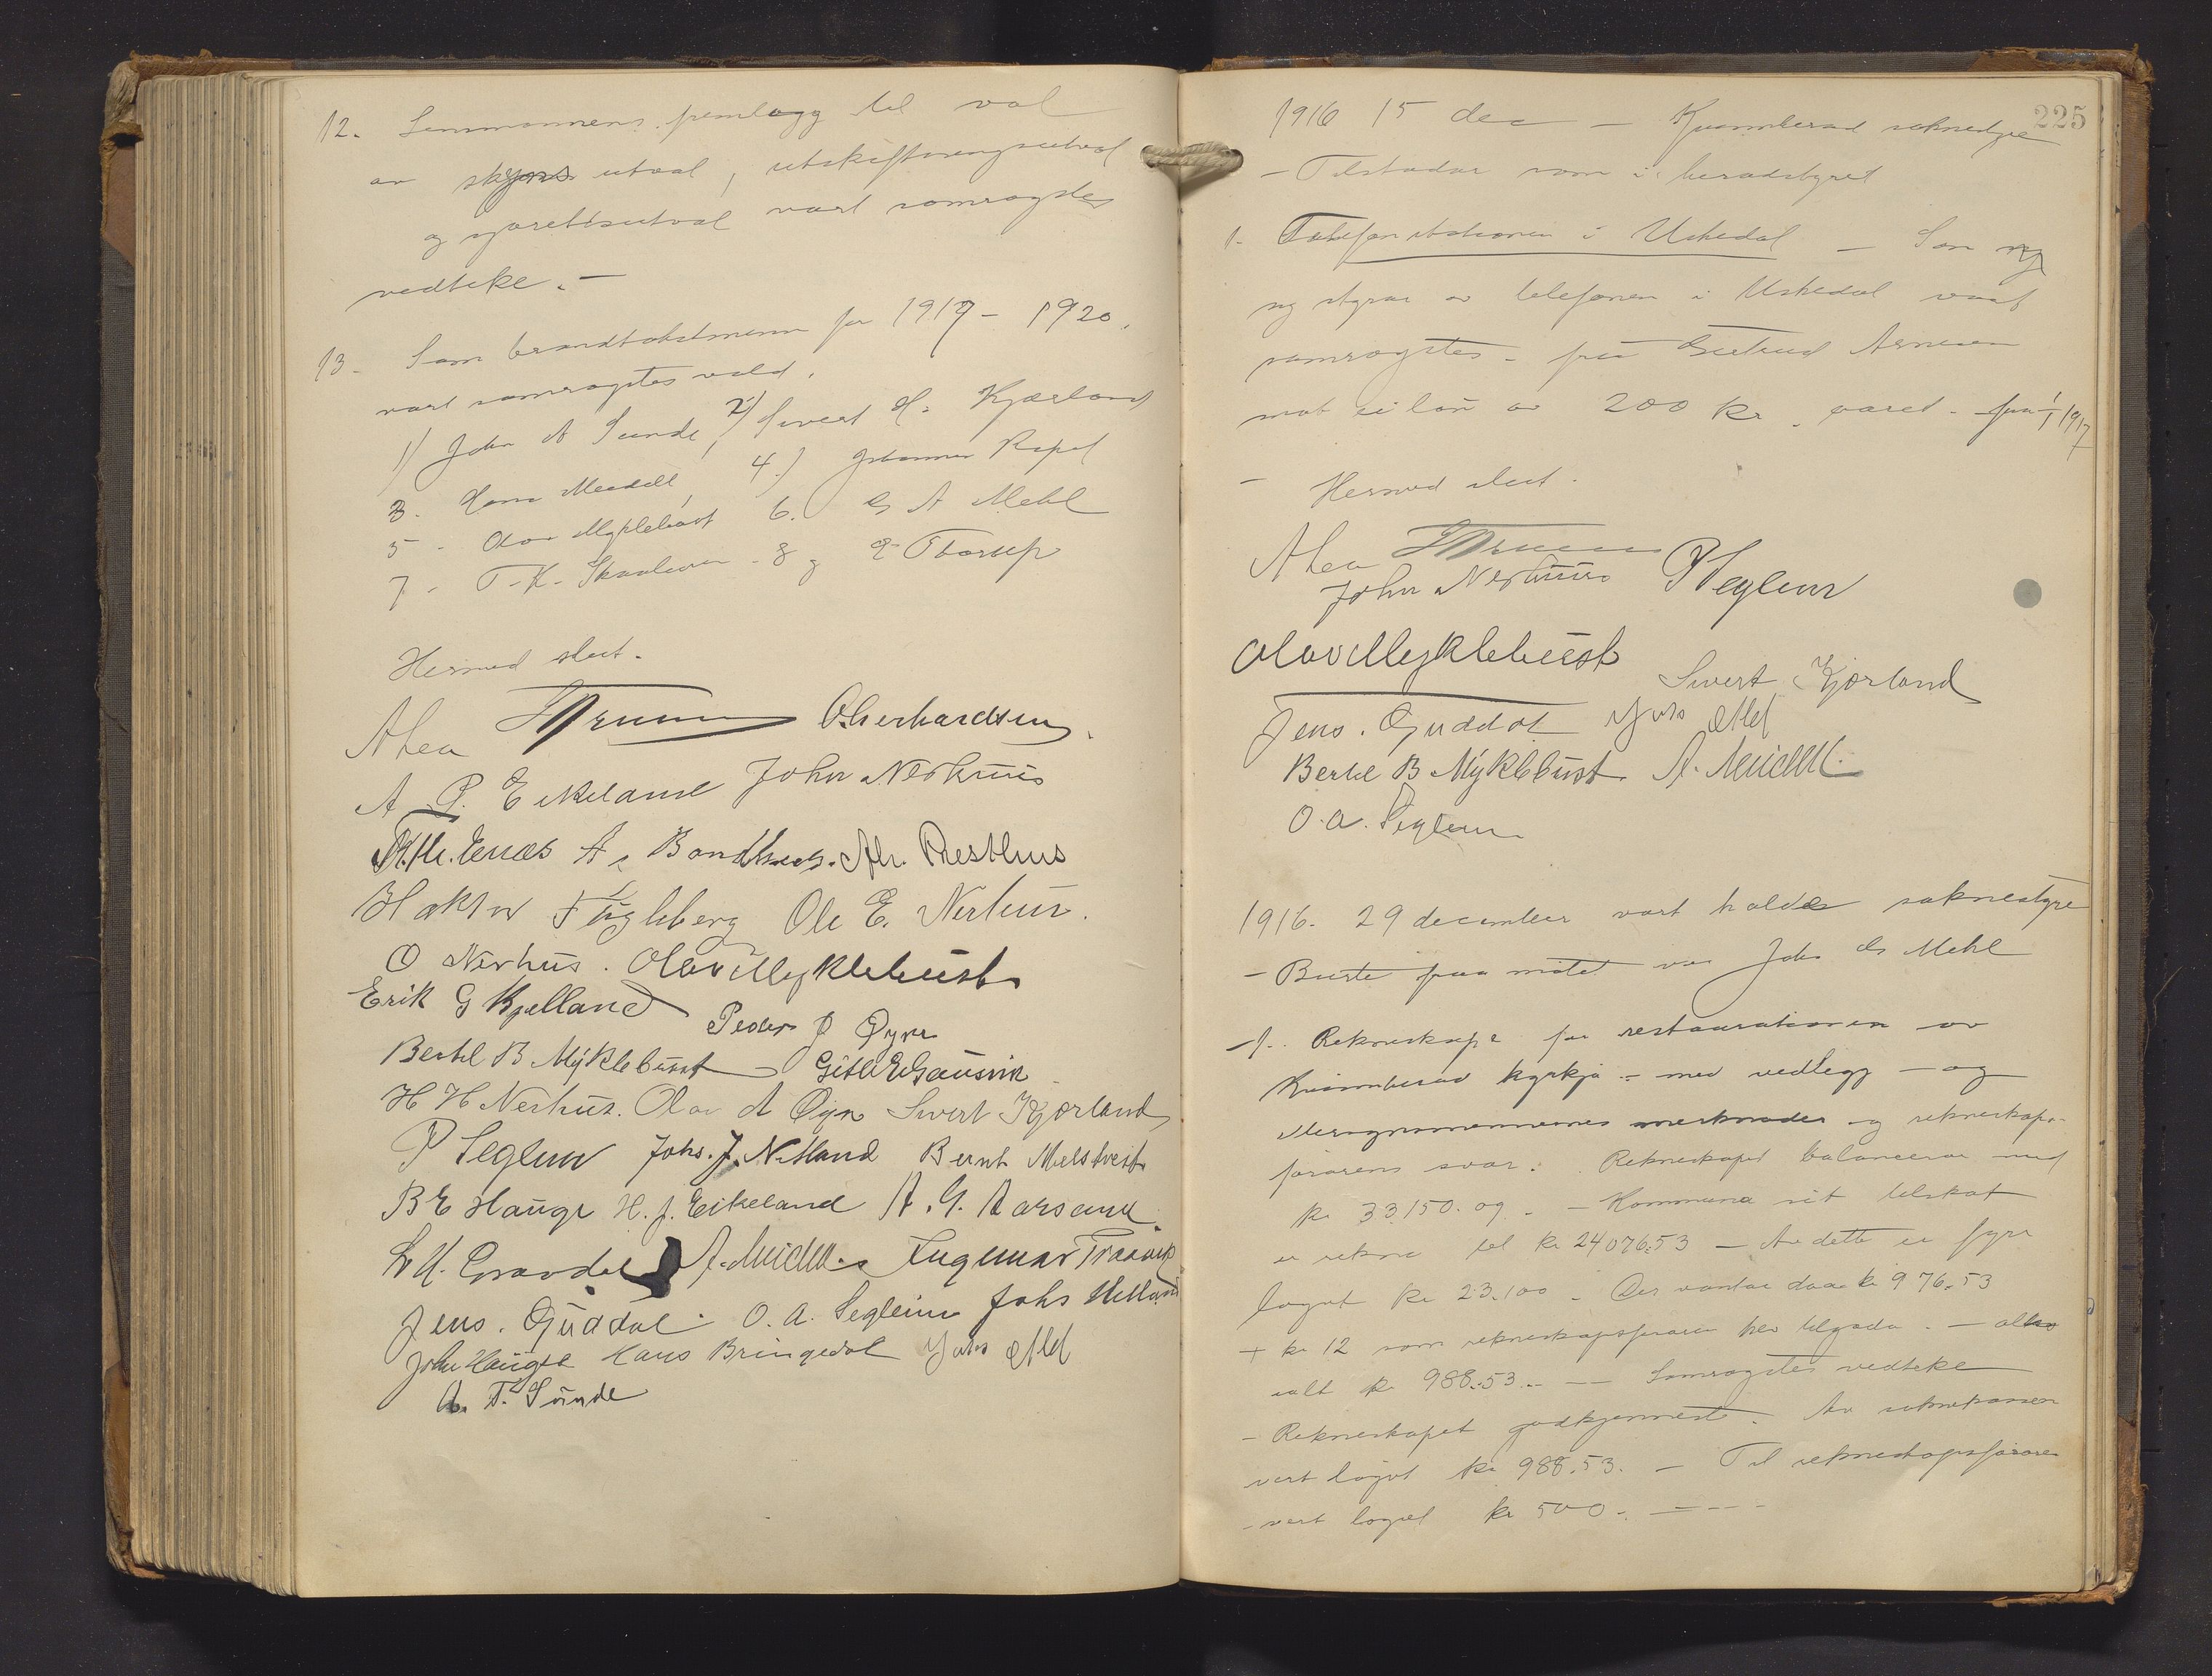 12. Lensmannens framlegg til val
av skyns utval, utskiftningsutval
og sjorettsutval vart samrøystes
vedteke. -
13. Som brandtakstmenn for 1917 - 1920.
vart samrøystes vald.
1) John A Sunde, 2) Sivert H. Kjærland
3. Hans Meidell 4.) Johannes Røpel
5 - Olav Myklebust 6. G A Mehl
7 - T. K. Skaaluren - 8 og E Thorsep
Hermed slut.
Ahea O. Gerhardsen
A P. Eikeland John Nerhuus
Enæs A. Bondhus. Ah. Presthus
Haktor Fugleberg Ole E. Nerhus.
O Nerhus. Olav Myklebust
Erik G Kjelland Peder J Øyre
Bertel B. Myklebust Gitle E Gausvik
H H Nerhus. Olav A Øyre Sivert Kjærland
P Seglem Johs. J. Netland Bernt Melstveit
B E Hauge H. J. Eikeland A. G. Aarsand
L H. Gravdal A. Meidell Ingemar Traavik
Jens. Guddal. O. A. Segleim Johs Helland
John Haugse Hans Bringedal Johs Mel
A. T. Sunde
225
1916 15 dec - Kvamherad soknestyre
- Tilstadar som i heradstyret
1. Telefonstationen i Uskedal - Som ny
ny styrar av telefonen i Uskedal vart
samrøystes - frü Gertrud Arnesen
mot ei løn av 200 kr. aaret - fra 1/1 1917
- Hermed slut.
Ahea
John Nerhuus P Seglem
Olav Myklebust
Sivert Kjærland
Jens. Guddal Johs Mel
Bertel B Myklebust. A. Meidell.
O. A. Seglem
1916. 29 december vart halde soknestyre
- Burte fraa møtet var Johs G Mehl
1. Rekneskape for restaurationen av
Kvamherad kyrkja - med vedlegg - og
revisormennernes merknader og rekneskaps-
førarens svar: Rekneskapet balancerar med
kr 33150.09. - Kommuna sit tilskot
er rekna til kr 24076.53 - Av dette er fyrr
løyvt kr 23.100 - Der vantar daa kr 976.53
+ kr 12 som rekneskapsføraren hev tilgode. - altso
ialt kr 988.53. - Samrøystes vedteke
- Rekneskapet godkjennest. Av soknekassen
vert løyvt kr 988.53. - Til rekneskapsføraren
- vert løyvt kr 500 -. - - - -